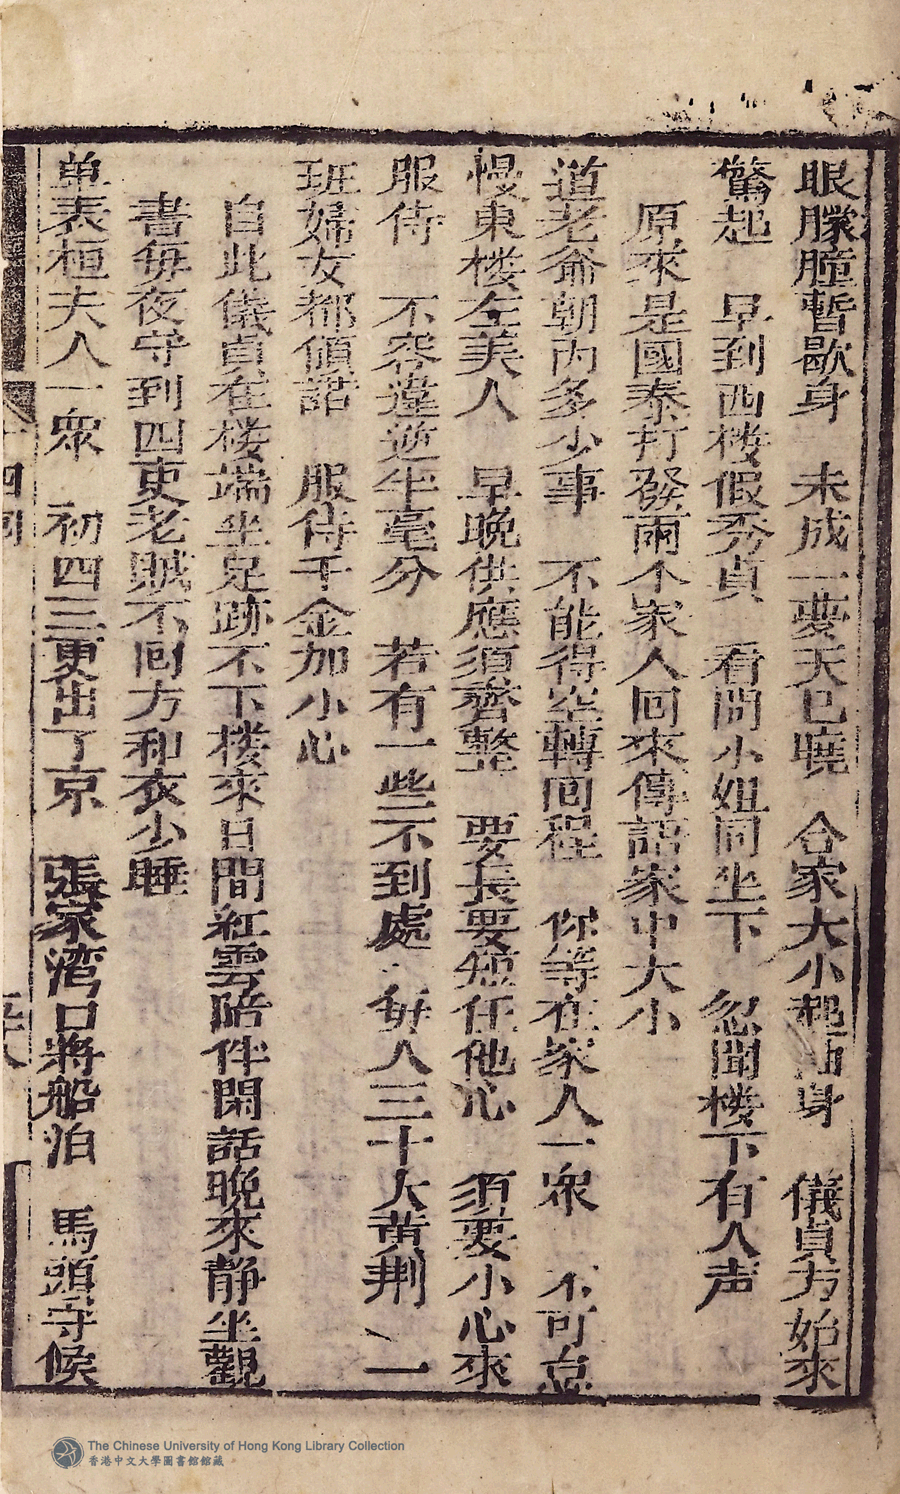 眼朦朧暫歇身　未成一夢天已曉　合家大小起抽身　儀貞方始來
驚起　早到西楼假秀貞　看問小姐同坐下　忽聞楼下有人声
原來是國泰打發兩个家人回來傳語家中大小
道老爺朝內多少事　不能得空轉囘程　你等在家人一眾　不可怠
慢東楼左美人　早晚供應須齊整　要長要短任他心　須要小心來
服侍　不容違逆半毫分　若有一些不到處　每人三十大黄荆　一
班婦女都傾諾　服侍千金加小心
自此儀貞在楼端坐足跡不下楼來日間紅雲陪伴閑話晚來静坐觀
書每夜守到四更老賊不囘方和衣少睡
单表桓夫人一眾　初四三更出了京　張家湾口將船泊　馬頭守候
十四囘
五十八
The Chinese University of Hong Kong Library Collection
香港中文大學圖書館館藏